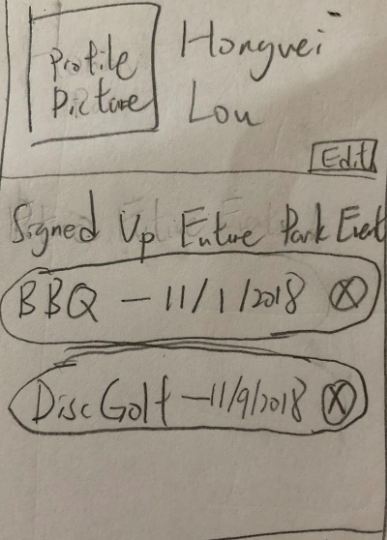 Profile
Picture
Hongwei
Lou
Edit
Signed Up Future Park Event
BBQ - 11/1/2018 X
Disc Golf - 11/9/2018 X